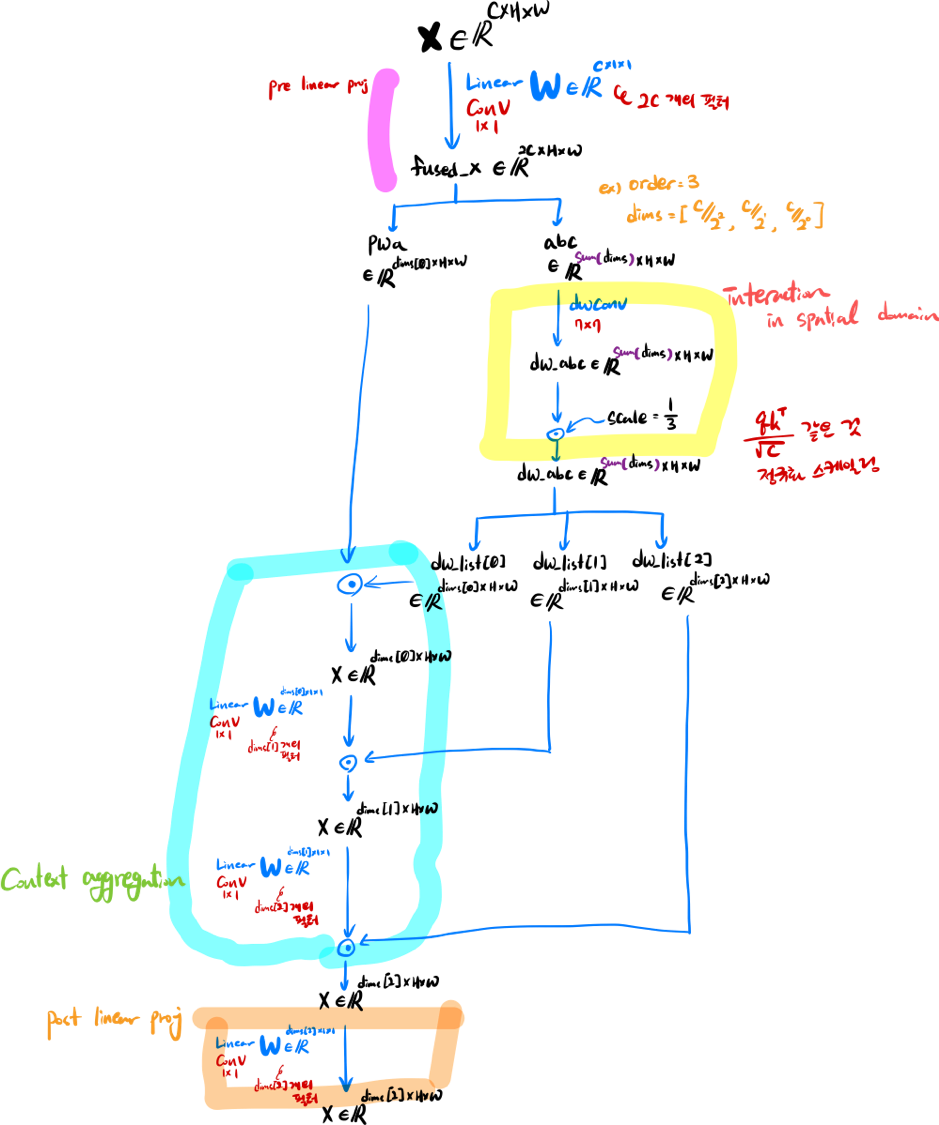 X ∈ ℝ^{C×H×W}
pre linear proj
Linear W ∈ ℝ^{C×1×1}
Conv
1×1
2C 개의 필터
fused_x ∈ ℝ^{2C×H×W}
ex) order = 3
dims = [ C//2², C//2¹, C//2⁰ ]
pwa
∈ ℝ^{dims[0]×H×W}
abc
∈ ℝ^{sum(dims)×H×W}
dwConv
7×7
Interaction
in spatial domain
dw_abc ∈ ℝ^{sum(dims)×H×W}
scale = 1/3
qkᵀ/√C 같은 것
정규화 스케일링
dw_abc ∈ ℝ^{sum(dims)×H×W}
dw_list[0]
∈ ℝ^{dims[0]×H×W}
dw_list[1]
∈ ℝ^{dims[1]×H×W}
dw_list[2]
∈ ℝ^{dims[2]×H×W}
X ∈ ℝ^{dims[0]×H×W}
Linear W ∈ ℝ^{dims[0]×1×1}
Conv
1×1
dims[1] 개의
필터
X ∈ ℝ^{dims[1]×H×W}
Context aggregation
Linear W ∈ ℝ^{dims[1]×1×1}
Conv
1×1
dims[2] 개의
필터
X ∈ ℝ^{dims[2]×H×W}
post linear proj
Linear W ∈ ℝ^{dims[2]×1×1}
Conv
1×1
dims[2] 개의
필터
X ∈ ℝ^{dims[2]×H×W}